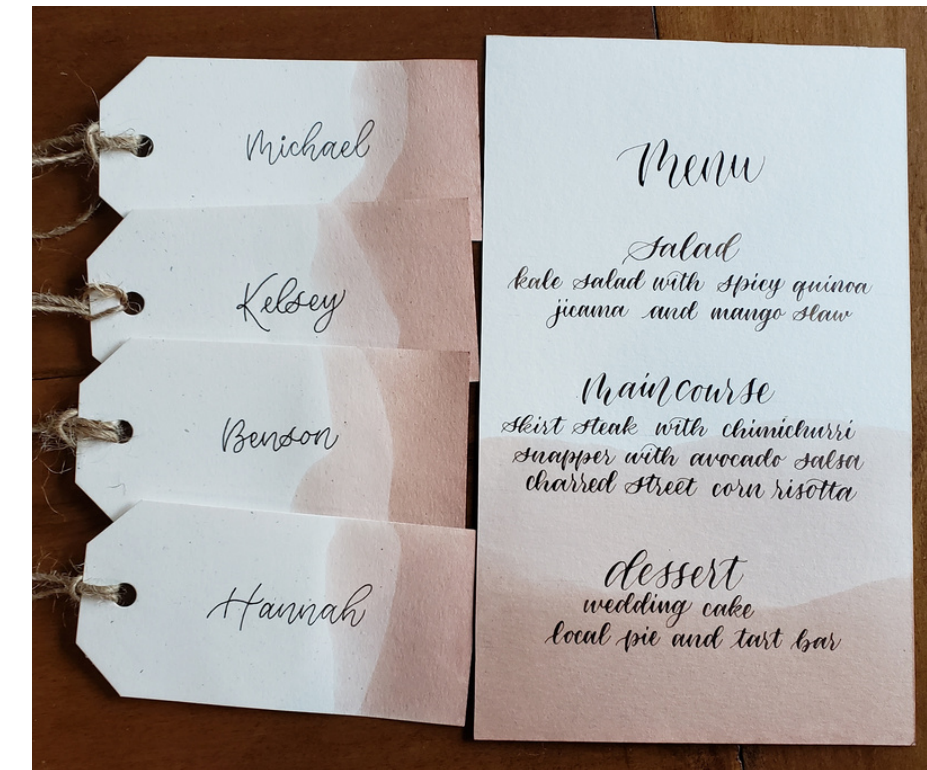 Michael
Kelsey
Benson
Hannah
Menu
salad
kale salad with spicy quinoa
jicama and mango slaw
main course
skirt steak with chimichurri
snapper with avocado salsa
charred street corn risotta
dessert
wedding cake
local pie and tart bar